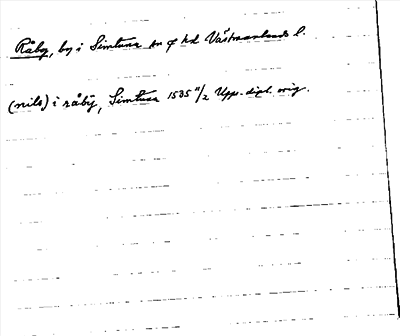 Råby, by i Simtuna sn o hd Västmanlands l.
(nils) i råby, Simtuna 1535 11/2 Upps. dipl. orig.